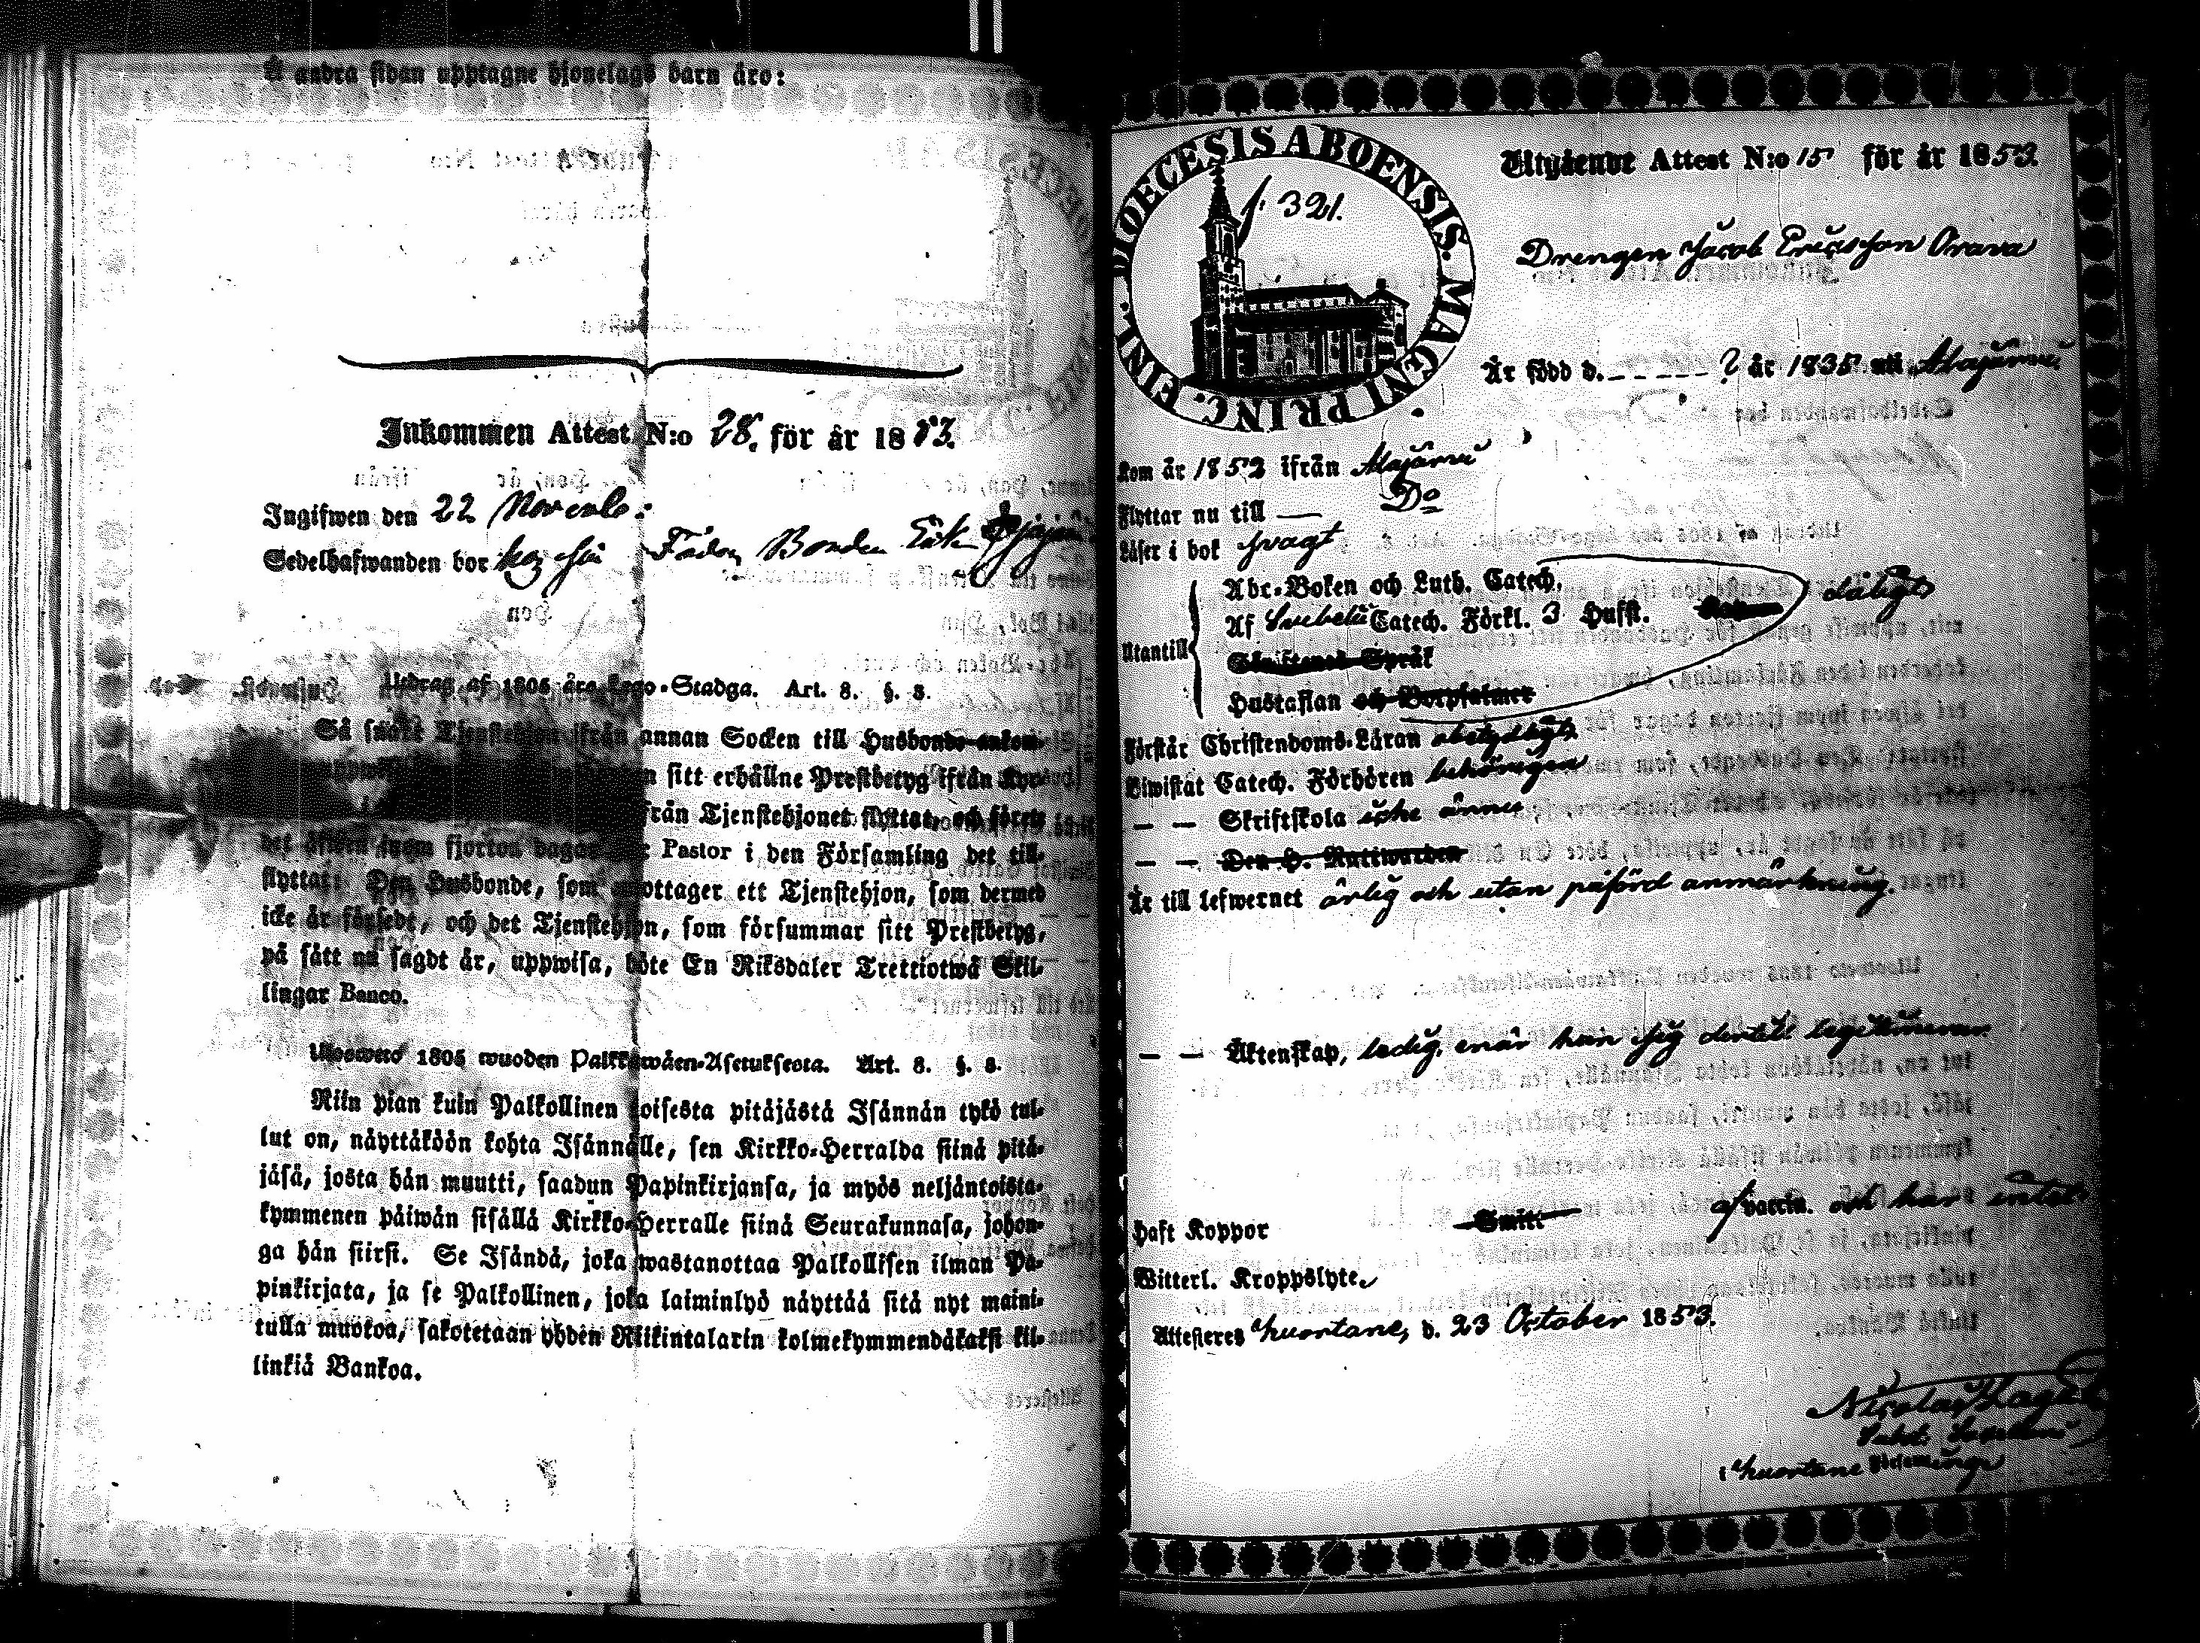 Å andra sidan upptagne hjonelags barn äro:
Inkommen Attest N:o 28. för år 1853.
Ingifwen den 22 Novemb:
Sedelhafwanden bor hos sin Fader Bonden Erik
Utdrag af 1805 års Lego-Stadga. Art. 8. §. 8.
Så snart Tjenstehjon ifrån annan Socken till Husbonde ankom-
n sitt erhållne Prestbetyg ifrån Kyr-
från Tjenstehjonet flyttat, och förete
det äfwen inom fjorton dagar Pastor i den Församling det till-
flyttat: Den Husbonde, som emottager ett Tjenstehjon, som dermed
icke är försedt, och det Tjenstehjon, som försummar sitt Prestbetyg,
på sätt nu sagdt är, uppwisa, böte En Riksdaler Trettiotwå Skil-
lingar Banco.
Ulosweto 1805 wuoden Palkkawäen-Asetuksesta. Art. 8. §. 8.
Niin pian kuin Palkollinen toisesta pitäjästä Isännän tykö tul-
lut on, näyttäköön kohta Isännälle, sen Kirkko-Herralda siinä pitä-
jäsä, josta hän muutti, saadun Papinkirjansa, ja myös neljäntoista-
kymmenen päiwän sisällä Kirkko-Herralle siinä Seurakunnasa, johon-
ga hän siirsi. Se Isändä, joka wastanottaa Palkollisen ilman Pa-
pinkirjata, ja se Palkollinen, joka laiminlyö näyttää sitä nyt maini-
tulla muotoa, sakotetaan yhden Riikintalarin kolmekymmendäkaksi kil-
linkiä Bankoa.
DIOECESIS ABOENSIS. MAGNI PRINC. FINL.
f. 321.
Utgående Attest N:o 15 för år 1853.
Drengen Jacob Ericsson Orava
Är född d. ? år 1835 uti Alajärvi
Kom år 1852 ifrån Alajärvi
Flyttar nu till — Do
Läser i bok svagt
Utantill
Abc-Boken och Luth. Catech.
Af Svebelii Catech. Förkl. 3 Hufst. dåligt
Skriftenes Språk
Hustaflan och Botpsalmer
Förstår Christendoms-Läran obetydligt
Biwistat Catech. Förhören behörigen
— — Skriftskola icke ännu
— — Den H. Nattwarden
Är till lefwernet ärlig och utan påförd anmärkning.
— — Äktenskap, ledig, enär han sig dertill legitimerar.
Haft Koppor Smitt vaccin. och har intet
Witterl. Kroppslyte.
Attesteras Kuortane, d. 23 October 1853.
Nicolaus
i Kuortane